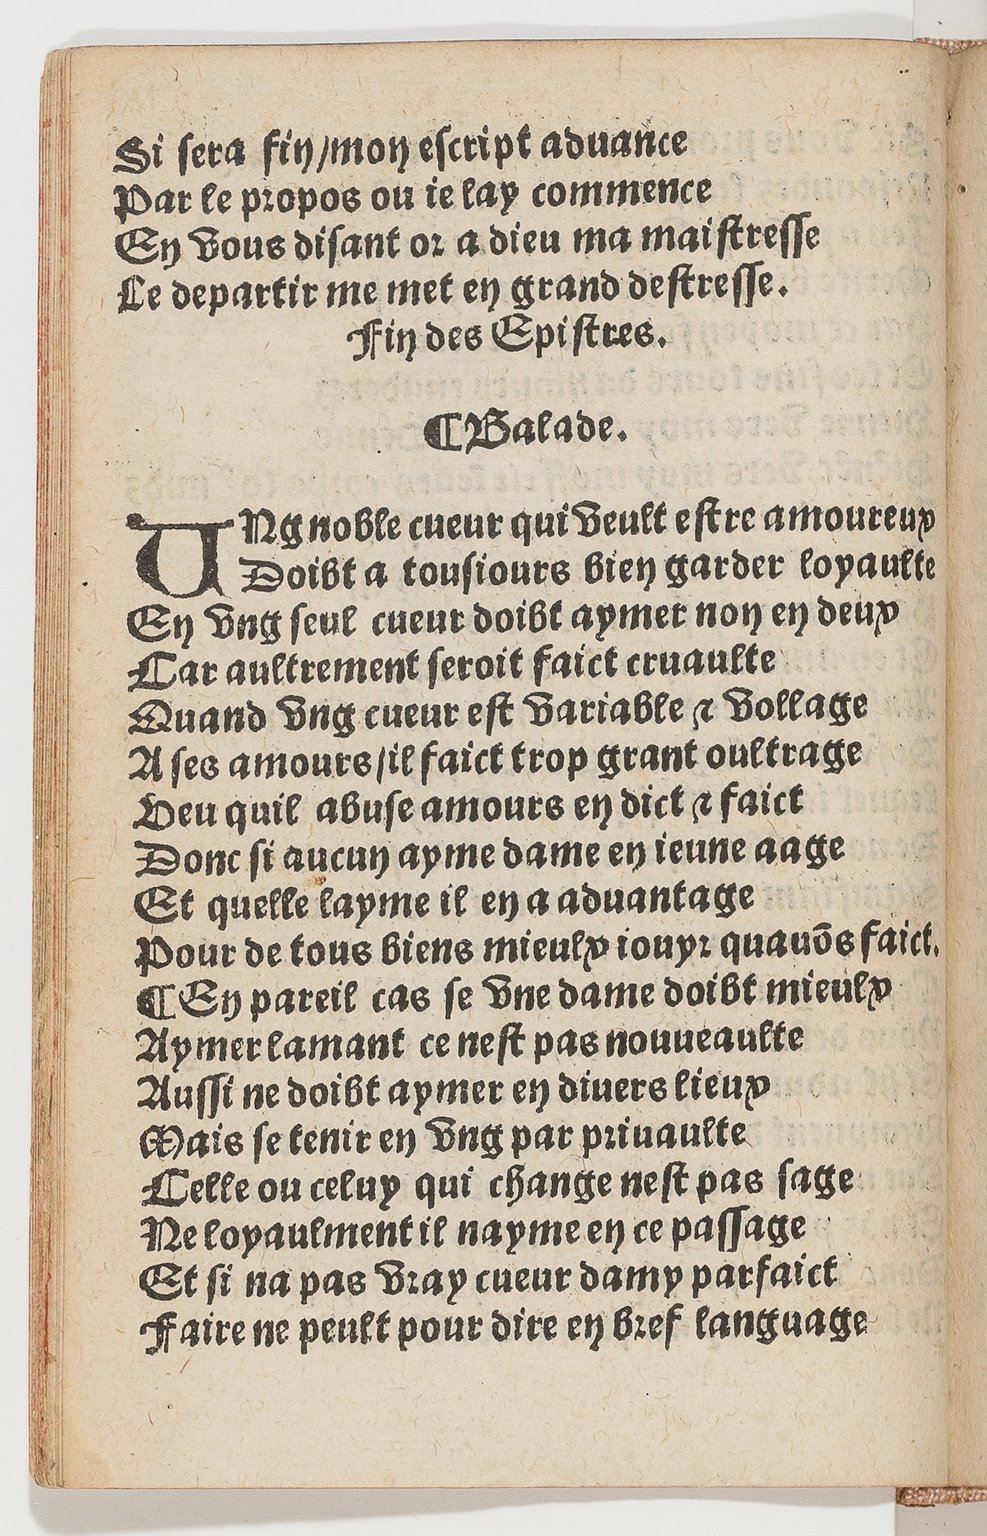 Si sera fin/mon escript aduance
Par le propos ou ie lay commence
En vous disant or a dieu ma maistresse
Le departir me met en grand destresse.
Fin des Epistres.
¶Balade.
UNg noble cueur qui veult estre amoureux
Doibt a tousiours bien garder loyaulte
En vng seul cueur doibt aymer non en deux
Car aultrement seroit faict cruaulte
Quand vng cueur est variable ⁊ vollage
A ses amours/il faict trop grant oultrage
Veu quil abuse amours en dict ⁊ faict
Donc si aucun ayme dame en ieune aage
Et quelle layme il en a aduantage
Pour de tous biens mieulx iouyr quauõs faict.
¶En pareil cas se vne dame doibt mieulx
Aymer lamant ce nest pas nouueaulte
Aussi ne doibt aymer en diuers lieux
Mais se tenir en vng par priuaulte
Celle ou celuy qui change nest pas sage
Ne loyaulment il nayme en ce passage
Et si na pas vray cueur damy parfaict
Faire ne peult pour dire en bref language